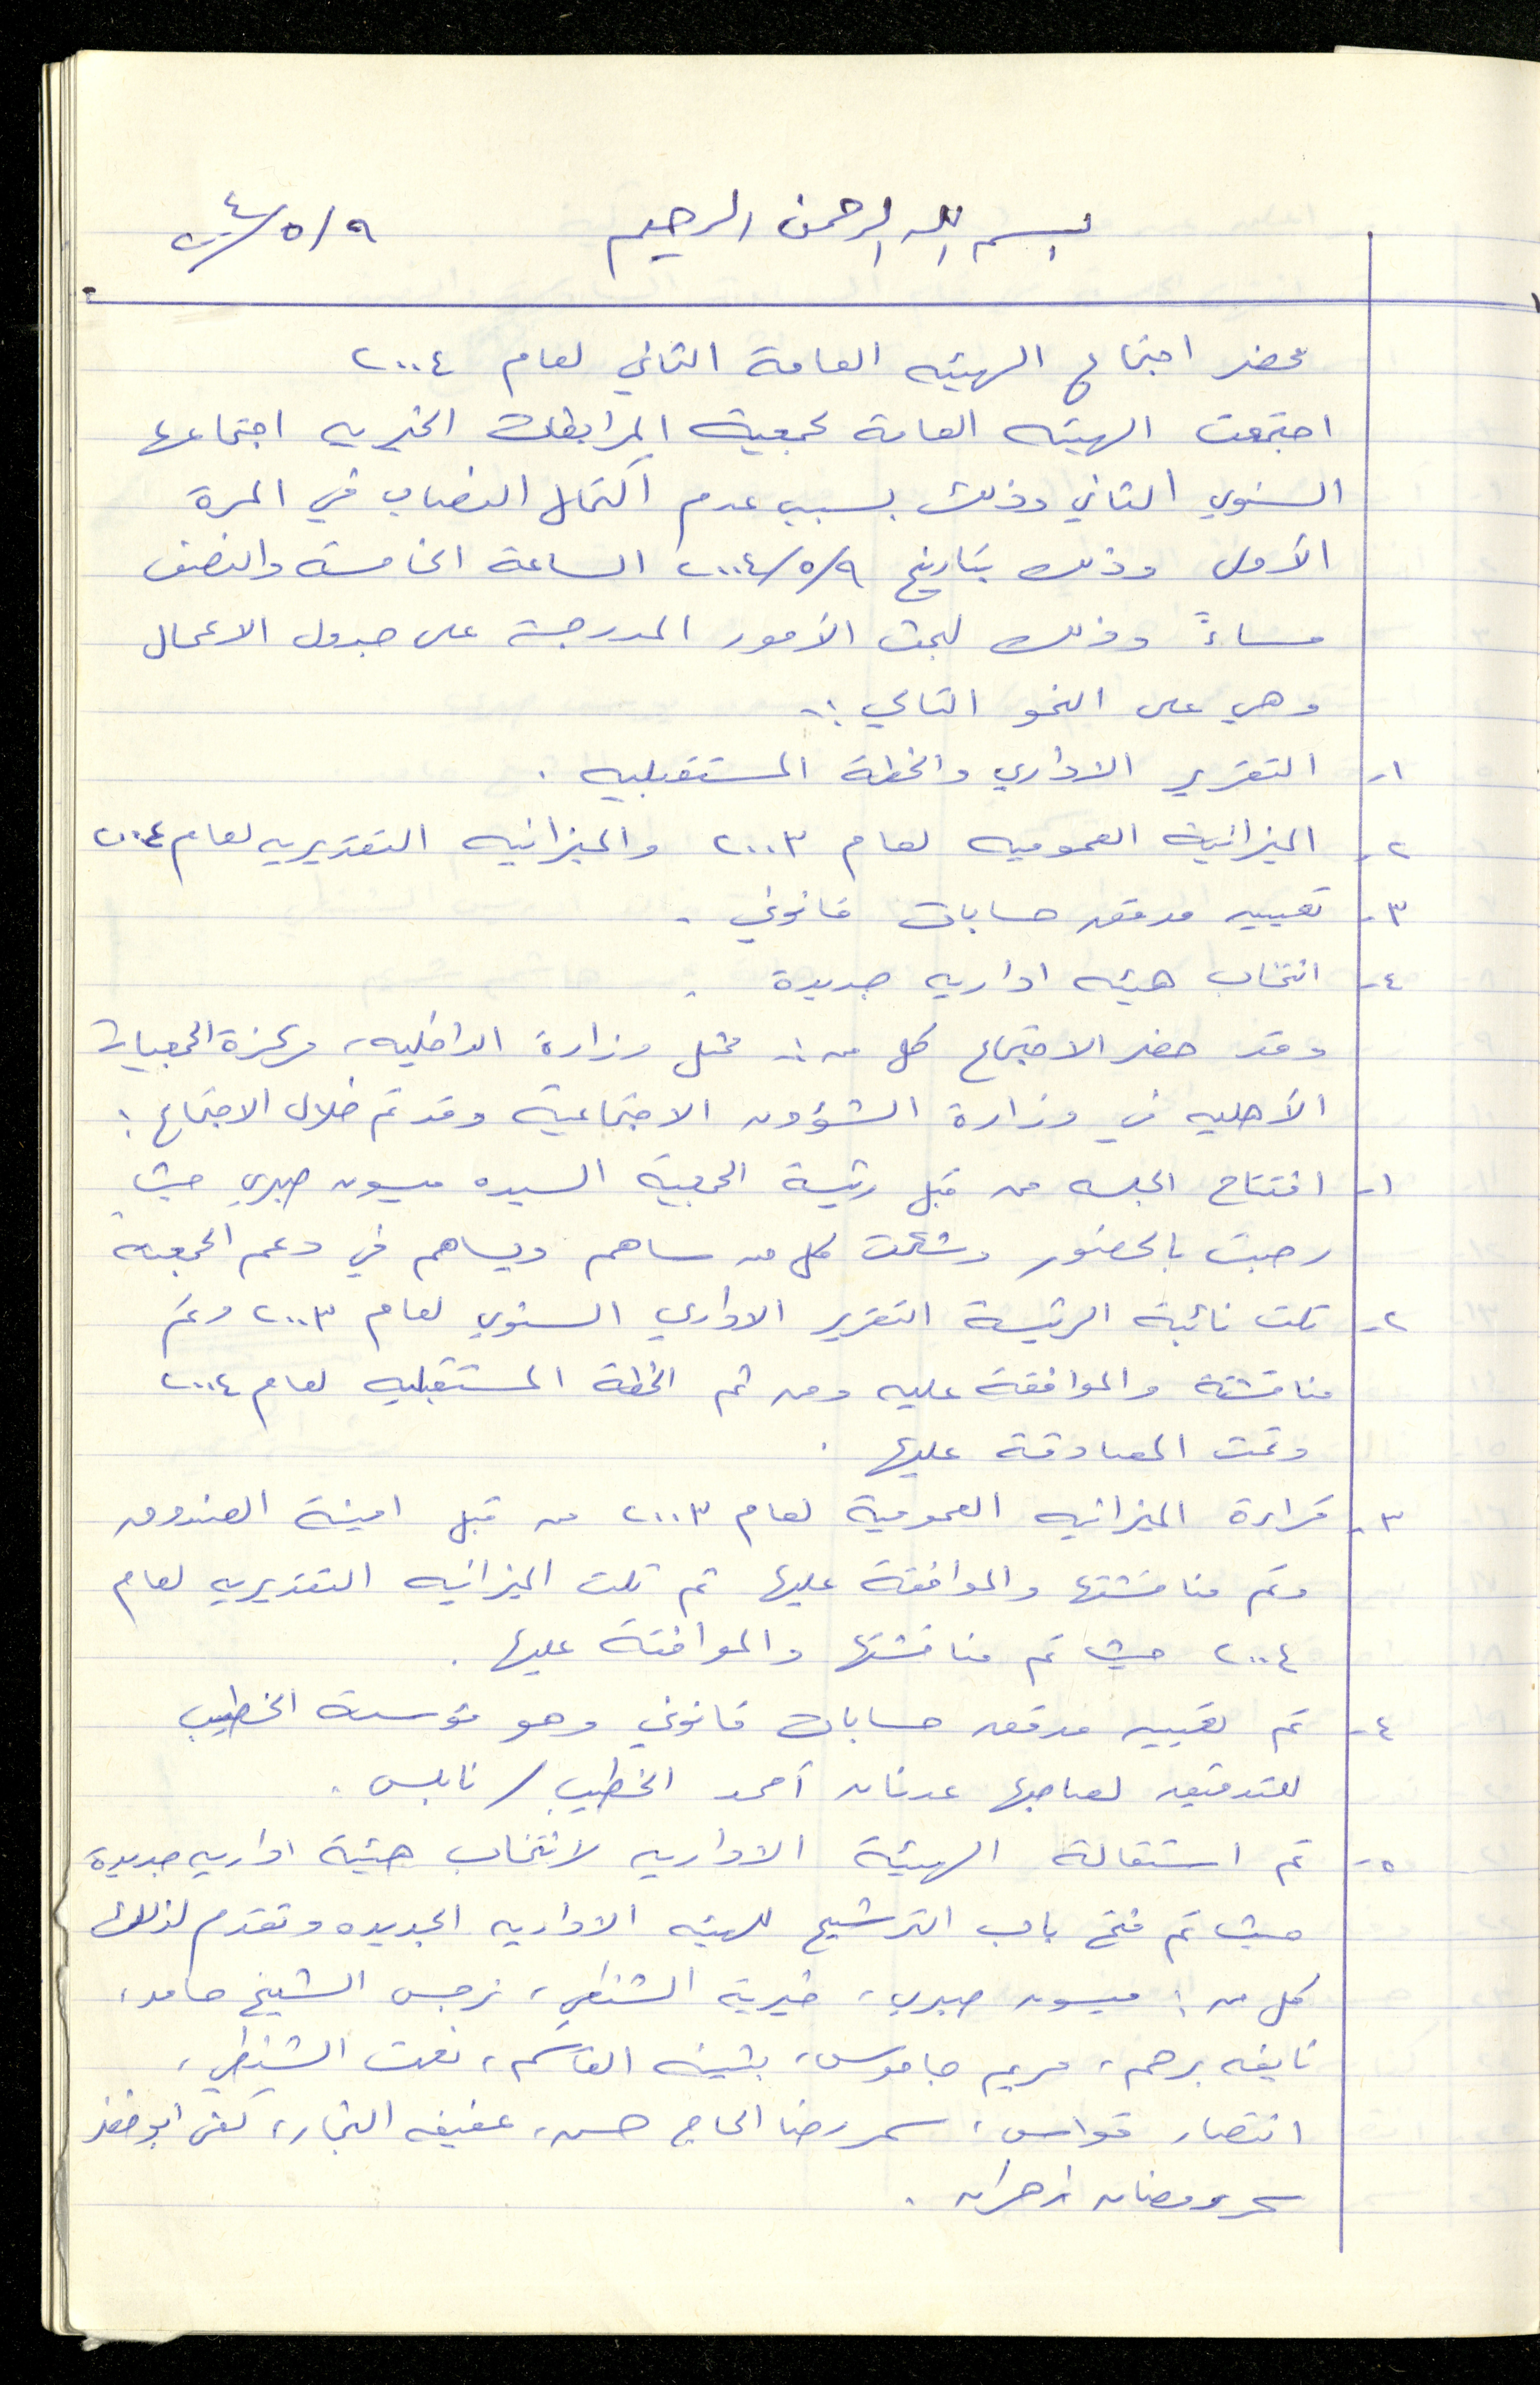 بسم الله الرحمن الرحيم ٢٠٠٤/٥/٩
محضر اجتماع الهيئه العامة الثاني لعام ٢٠٠٤
اجتمعت الهيئه العامة لجمعية المرابطات الخيريه اجتماعها
السنوي الثاني وذلك بسبب عدم اكتمال النصاب في المرة
الأولى وذلك بتاريخ ٢٠٠٤/٥/٩ الساعة الخامسة والنصف
مساءً وذلك لبحث الأمور المدرجة على جدول الاعمال
وهي على النحو التالي :-
١- التقرير الاداري والخطة المستقبليه .
٢- الميزانية العموميه لعام ٢٠٠٣ والميزانيه التقديريه لعام ٢٠٠٤
٣- تعيين مدقق حسابات قانوني .
٤- انتخاب هيئه اداريه جديدة .
وقد حضر الاجتماع كل من :- ممثل وزارة الداخليه، الجمعيات
الأهليه في وزارة الشؤون الاجتماعية وقد تم خلال الاجتماع :
١- افتتاح الجلسه من قبل رئيسة الجمعية السيده ميسون صبري حيث
رحبت بالحضور وشكرت كل من ساهم ويساهم في دعم الجمعيه
٢- تلت نائبة الرئيسة التقرير الاداري السنوي لعام ٢٠٠٣ وتم
مناقشته والموافقة عليه ومن ثم الخطة المستقبليه لعام ٢٠٠٤
وتمت المصادقة عليها .
٣- قراءة الميزانيه العمومية لعام ٢٠٠٣ من قبل امينة الصندوق
وتم مناقشتها والموافقة عليها ثم تلت الميزانيه التقديريه لعام
٢٠٠٤ حيث تم مناقشتها والموافقة عليها .
٤- تم تعيين مدقق حسابات قانوني وهو مؤسسة الخطيب
للتدقيق لصاحبها عدنان أحمد الخطيب / نابلس .
٥- تم استقالة الهيئة الاداريه لانتخاب هيئة اداريه جديدة
حيث تم فتح باب الترشيح للهيئه الاداريه الجديده وتقدم لذلك
كل من : ميسون صبري، خيرية الشنطي، نرجس الشيخ حامد،
نايفه برهم، مريم جاموس، بثينه القاسم، نعمت الشنطي،
انتصار قواس، سمر رضا الحاج حسن، عفيفه النجار، ابو خضر
سحر رمضان زهران .